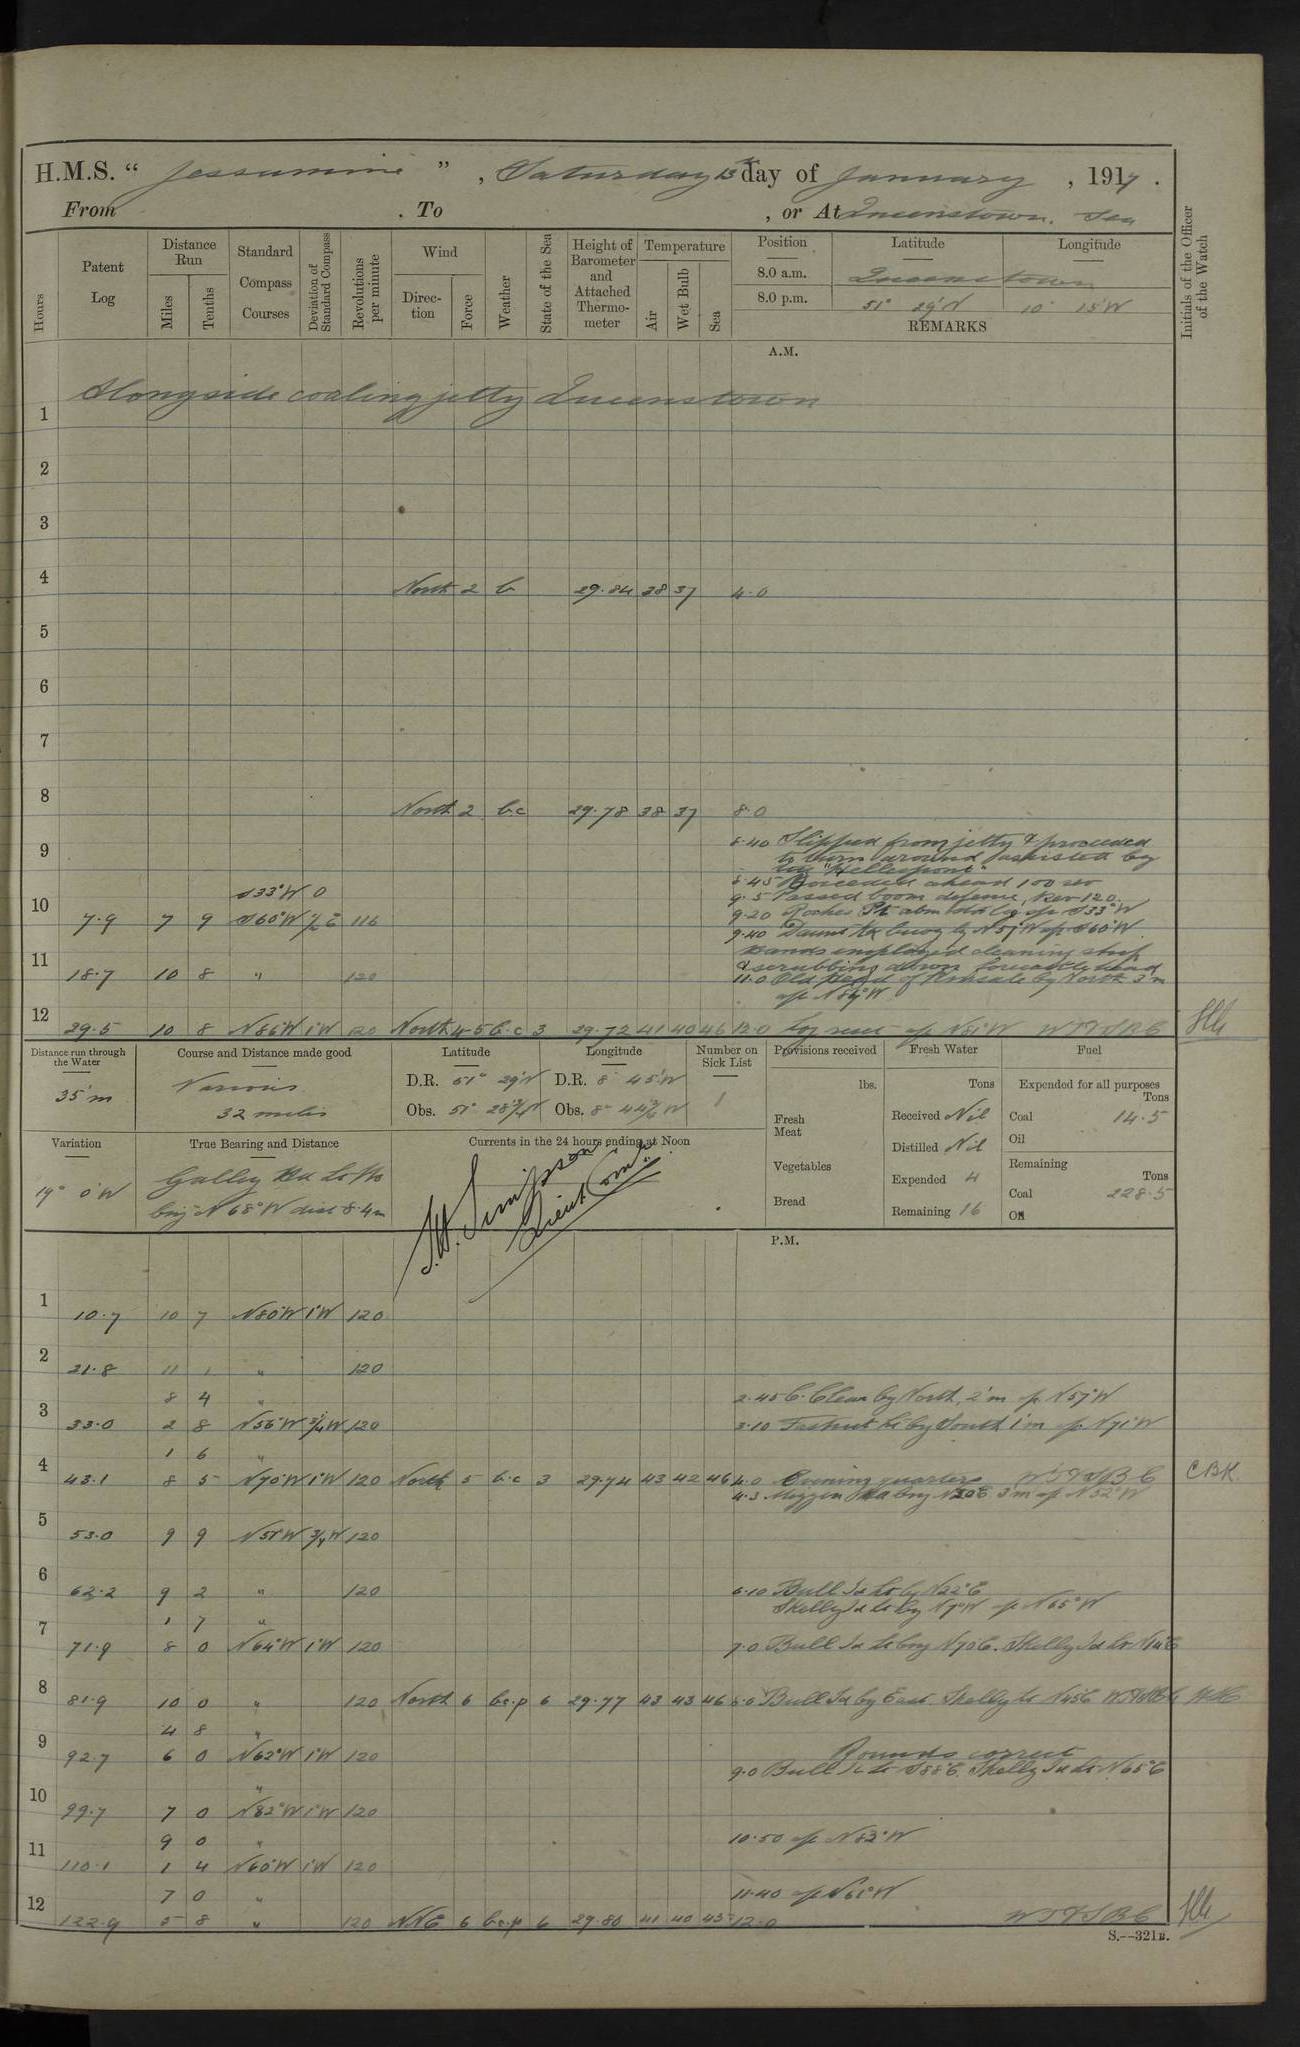 H.M.S. “ Jessamine ” , Saturday 13th day of January , 1917 .
From . To , or At Queenstown. Sea
Hours
Patent Log
Distance Run
Miles
Tenths
Standard Compass Courses
Deviation of Standard Compass
Revolutions per minute
Wind
Direction
Force
Weather
State of the Sea
Height of Barometer and Attached Thermometer
Temperature
Air
Wet Bulb
Sea
Position
Latitude
Longitude
8.0 a.m. Queenstown
8.0 p.m. 51° 29'N 10° 15'W
REMARKS
Initials of the Officer of the Watch
A.M.
Alongside coaling jetty Queenstown
1
2
3
4 North 2 b 29.84 38 37 4.0
5
6
7
8 North 2 b.c 29.78 38 37 8.0
8.40 Slipped from jetty & proceeded
9 to turn around assisted by
tug "Hellespont"
8.45 Proceeded ahead 100 rev
S33°W 0 9.5 Passed boom defence, Rev 120.
10 7.9 7 9 S60°W 1/2 E 116 9.20 Roches Pt abm a/c S33°W
9.40 Daunt Rk buoy by N57°W a/c S60°W
Hands employed cleaning ship
11 18.7 10 8 " 120 & scrubbing down forecastle head
11.0 Old Head of Kinsale by North 3'm
a/c N86°W
12 29.5 10 8 N86°W 1°W 120 North 4-5 b.c 3 29.72 41 40 46 12.0 Log reset a/c N81°W WTFSBC
Distance run through the Water
35'm
Course and Distance made good
Various
32 miles
Latitude
D.R. 51° 29'N
Obs. 51° 28 3/4'N
Longitude
D.R. 8° 45'W
Obs. 8° 44 3/4'W
Number on Sick List
1
Provisions received
lbs.
Fresh Meat
Vegetables
Bread
Fresh Water
Tons
Received Nil
Distilled Nil
Expended 4
Remaining 16
Fuel
Expended for all purposes
Tons
Coal 14.5
Oil
Remaining
Tons
Coal 228.5
Oil
Variation
19° 0'W
True Bearing and Distance
Galley Hd Lt Ho
brg N 68°W dist 8.4m
Currents in the 24 hours ending at Noon
Simpson
Lieut Com
P.M.
1 10.7 10 7 N80°W 1°W 120
2 21.8 11 1 " 120
8 4 " 2.45 C. Clear by North, 2'm a/c N57°W
3 33.0 2 8 N56°W 3/4W 120 3.10 Fastnet Lt by South 1'm a/c N71°W
1 6 "
4 43.1 8 5 N70°W 1°W 120 North 5 b.c 3 29.74 43 42 46 4.0 Evening quarters WTFSBC CBK
4.3 Mizzen Hd brg N20E 3'm a/c N52°W
5 53.0 9 9 N51°W 3/4W 120
6 62.2 9 2 " 120 6.10 Bull Id Lt by N22°E
1 7 " Skelly Id Lt by N7°W a/c N65°W
7 71.9 8 0 N64°W 1°W 120 7.0 Bull Id Lt brg N70E. Skelly Id Lt N14E
8 81.9 10 0 " 120 North 6 bc.p 6 29.77 43 43 46 8.0 Bull Id by East Skelly Lt N45E
4 8 "
9 92.7 6 0 N62°W 1°W 120 Rounds correct
" 9.0 Bull Id Lt S88E. Skelly Id Lt N65°E
10 99.7 7 0 N82°W 1°W 120
9 0 " 10.50 a/c N83°W
11 110.1 1 4 N60°W 1°W 120
7 0 " 11.40 a/c N61°W
12 122.9 5 8 " 120 NNE 6 bc.p 6 29.80 41 40 45 12.0 WTFSBC
S.--321B.